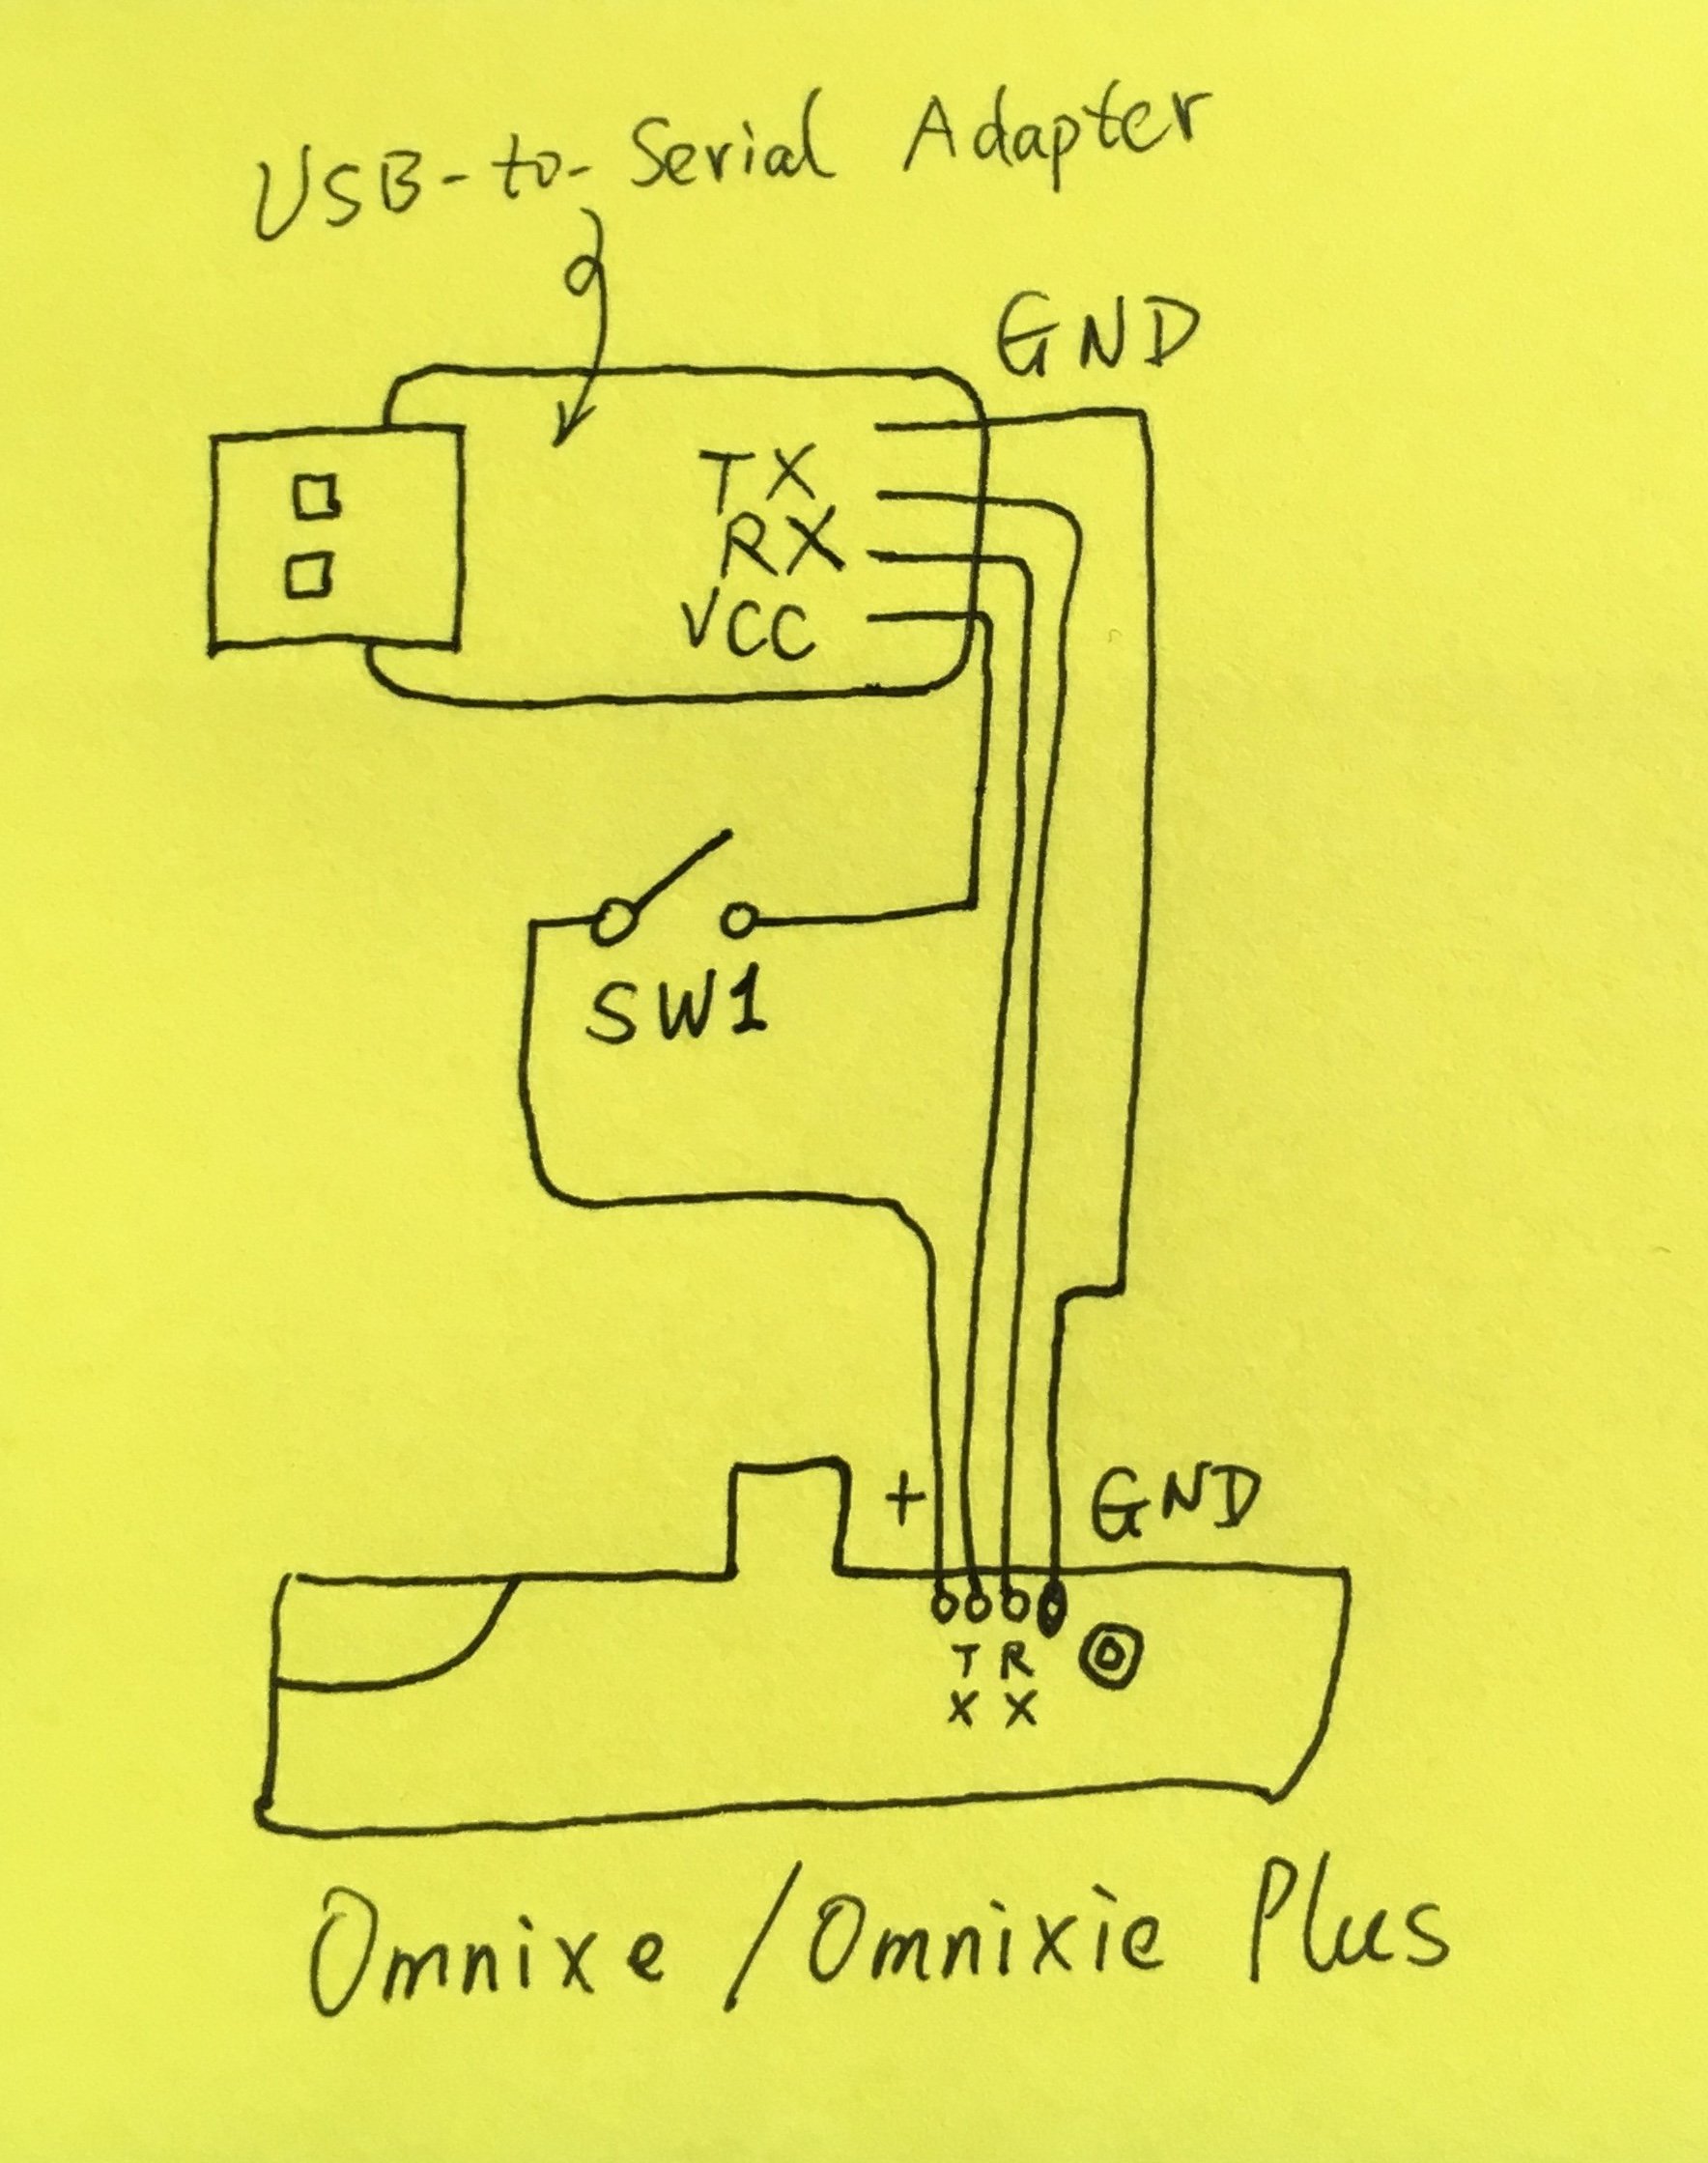 USB-to-Serial Adapter
GND
TX
RX
VCC
SW1
+ GND
TX RX
Omnixe / Omnixie Plus